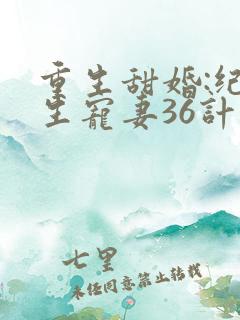 重生甜婚:纪
生宠妻36計
七里
未经同意禁止转载